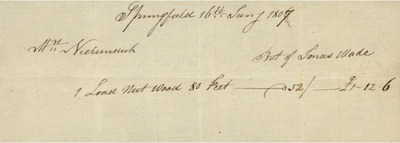 Springfield 16th Jany 1807
Mr
Bot of Jonas Wade
1 Load Nut Wood 80 feet — 52/ — £1-12-6